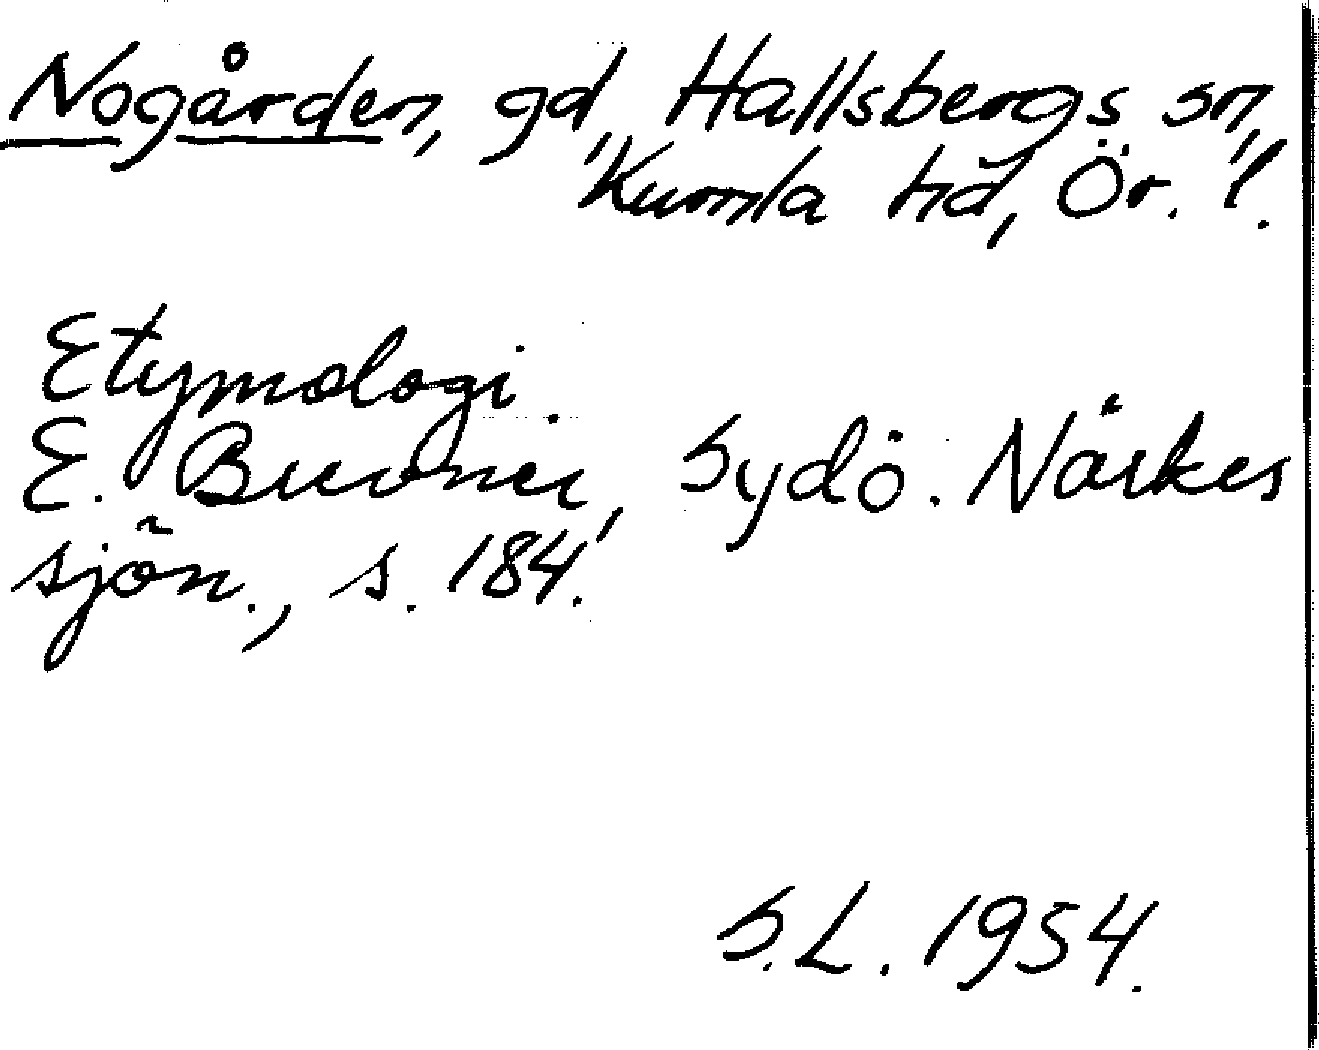 Nogården, gd, Hallsbergs sn,
Kumla hd, Ör. l.
Etymologi.
E. Brevner, Sydö. Närkes
sjön., s. 184.
S.L. 1954.